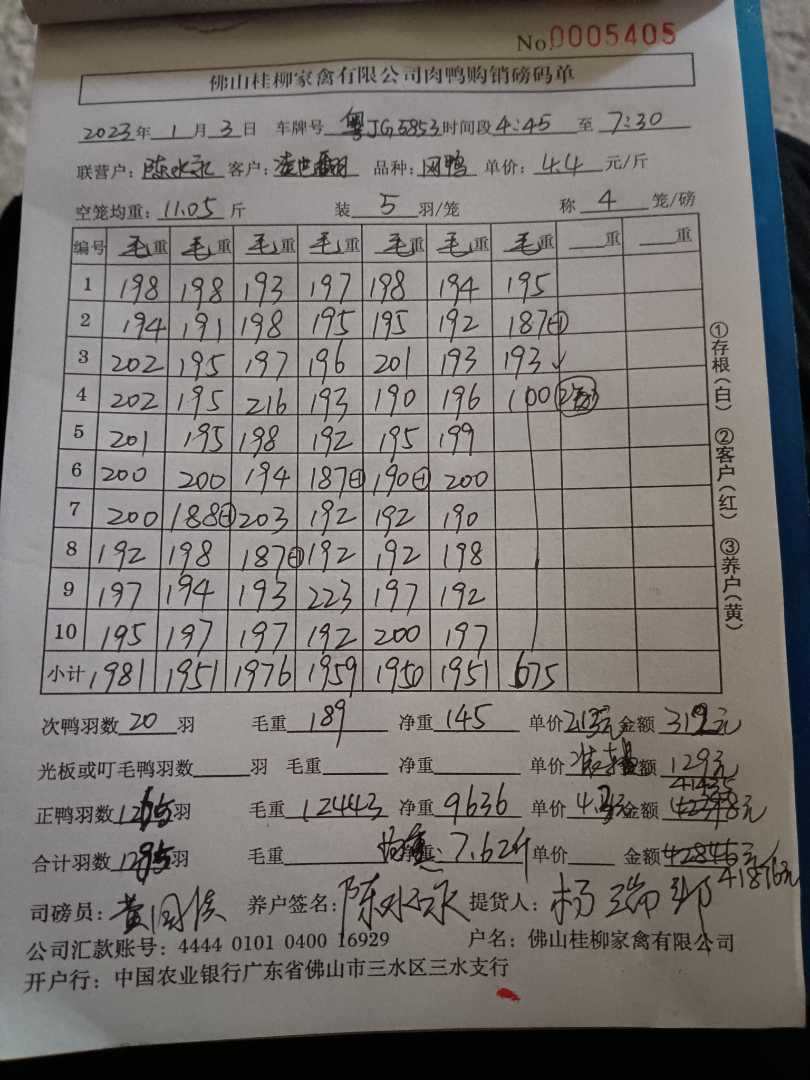 No.0005405
佛山桂柳家禽有限公司肉鸭购销磅码单
2023年 1月 3日 车牌号 粤JG5853 时间段 4:45 至 7:30
联营户: 陈水永 客户: 品种: 网鸭 单价: 4.4 元/斤
空笼均重: 11.05 斤 装 5 羽/笼 称 4 笼/磅
编号 毛重 毛重 毛重 毛重 毛重 毛重 毛重 重 重
1 198 198 193 197 198 194 195
2 194 191 198 195 195 192 187⊖
3 202 195 197 196 201 193 193
4 202 195 216 193 190 196 100
5 201 195 198 192 195 199
6 200 200 194 187⊖ 190⊖ 200
7 200 188⊖ 203 192 192 190
8 192 198 187⊖ 192 192 198
9 197 194 193 223 197 192
10 195 197 197 192 200 197
小计 1981 1951 1976 1959 1950 1951 675
次鸭羽数 20 羽 毛重 189 净重 145 单价 金额 319元
光板或叮毛鸭羽数 羽 毛重 净重 单价 金额 129元
正鸭羽数 羽 毛重 12443 净重 9636 单价 金额 41435
合计羽数 羽 毛重 净重: 7.62斤 单价 金额 42846元 41876元
司磅员: 养户签名: 陈水永 提货人: 杨瑞邦
公司汇款账号: 4444 0101 0400 16929 户名: 佛山桂柳家禽有限公司
开户行: 中国农业银行广东省佛山市三水区三水支行
①存根(白) ②客户(红) ③养户(黄)